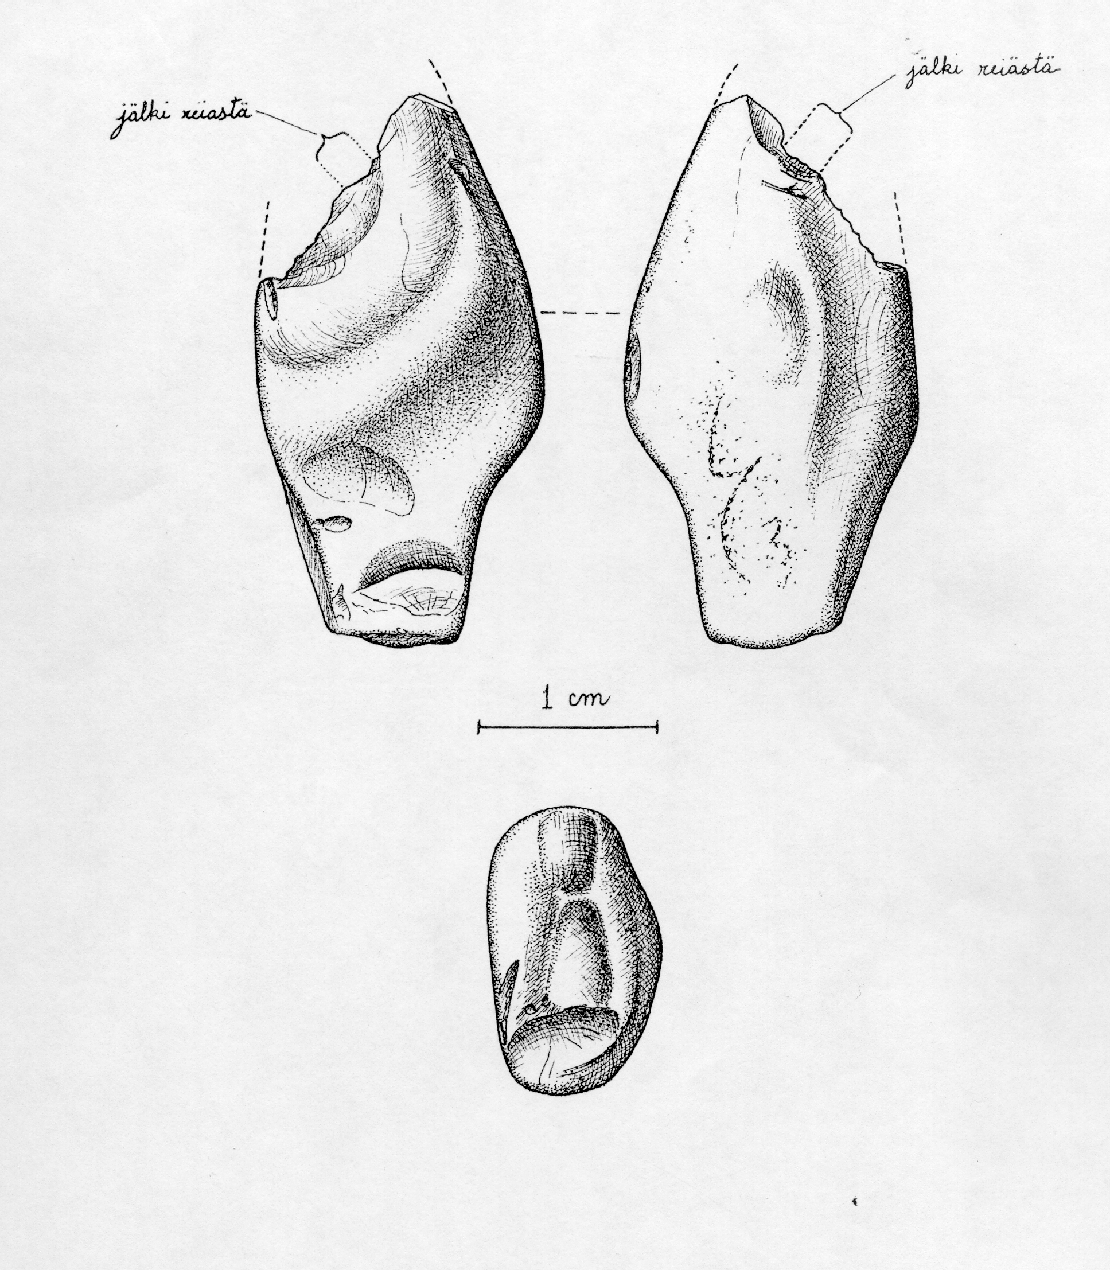 jälki reiästä
jälki reiästä
1 cm